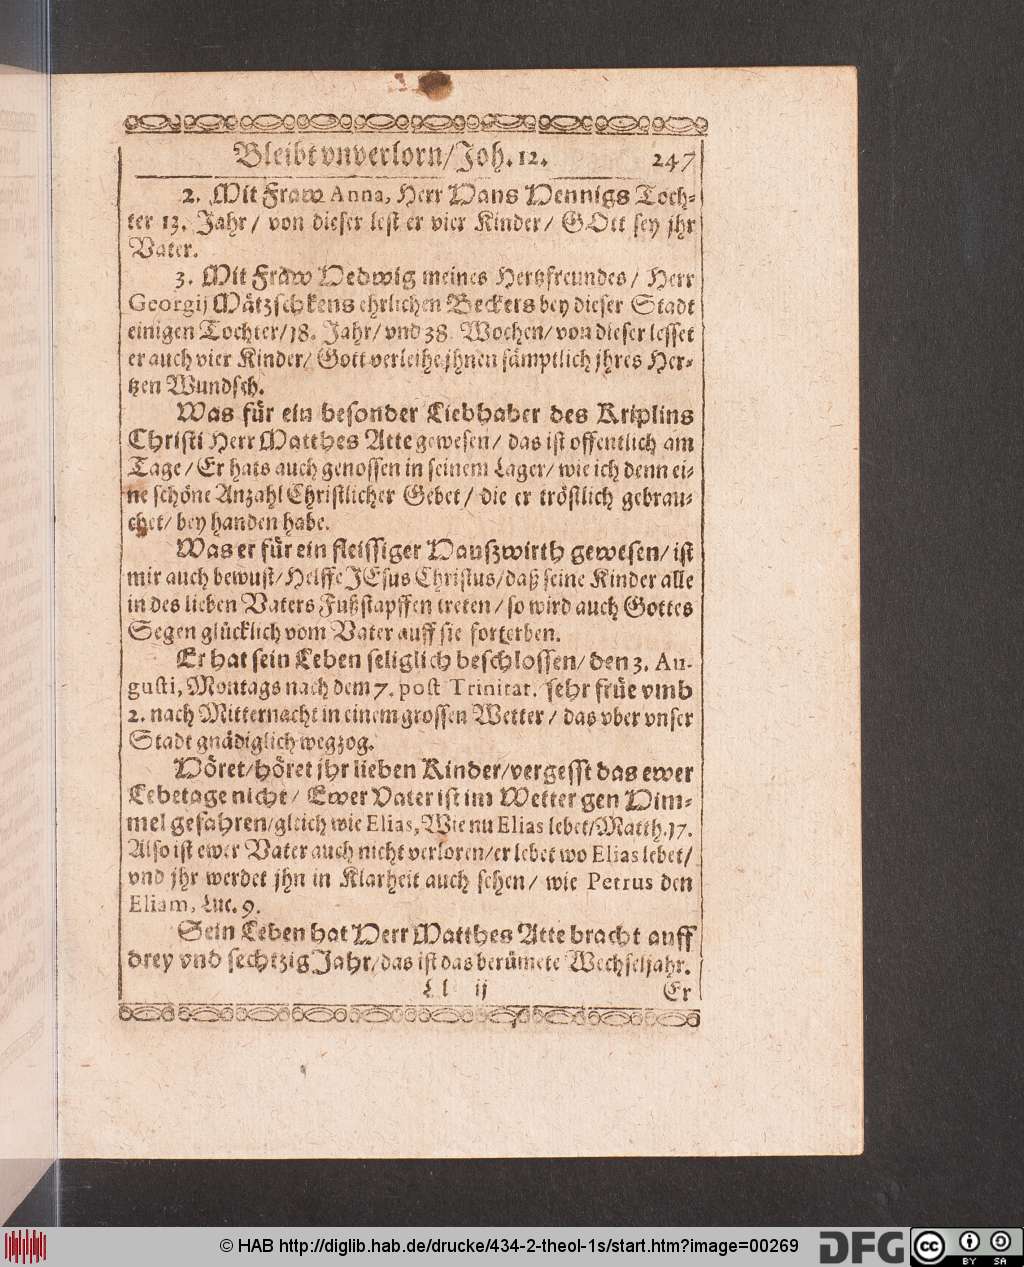 Bleibt vnverlorn/Joh. 12. 247
2. Mit Fraw Anna, Herr Hans Hennigs Toch⸗
ter 13. Jahr/ von dieser lest er vier Kinder/ GOtt sey jhr
Vater.
3. Mit Fraw Hedwig meines Hertzfreundes/ Herr
Georgij Mätzschkens ehrlichen Beckers bey dieser Stadt
einigen Tochter/18. Jahr/ vnd 38. Wochen/ von dieser lesset
er auch vier Kinder/ Gott verleihe jhnen sämptlich jhres Her⸗
tzen Wundsch.
Was für ein besonder Liebhaber des Kriplins
Christi Herr Matthes Atte gewesen/ das ist offentlich am
Tage/ Er hats auch genossen in seinem Lager/ wie ich denn ei⸗
ne schöne Anzahl Christlicher Gebet/ die er tröstlich gebrau⸗
chet/ bey handen habe.
Was er für ein fleissiger Hauszwirth gewesen/ ist
mir auch bewust/ Helffe JEsus Christus/ daß seine Kinder alle
in des lieben Vaters Fußstapffen treten/ so wird auch Gottes
Segen glücklich vom Vater auff sie forterben.
Er hat sein Leben seliglich beschlossen/ den 3. Au-
gusti, Montags nach dem 7. post Trinitat. sehr früe vmb
2. nach Mitternacht in einem grossen Wetter/ das vber vnser
Stadt gnädiglich wegzog.
Höret/höret jhr lieben Kinder/vergesst das ewer
Lebetage nicht/ Ewer Vater ist im Wetter gen Him⸗
mel gefahren/gleich wie Elias, Wie nu Elias lebet/Matth.17.
Also ist ewer Vater auch nicht verloren/er lebet wo Elias lebet/
vnd jhr werdet jhn in Klarheit auch sehen/ wie Petrus den
Eliam, Luc. 9.
Sein Leben hat Herr Matthes Atte bracht auff
drey vnd sechtzig Jahr/das ist das berümete Wechseljahr.
Ll ij Er
© HAB http://diglib.hab.de/drucke/434-2-theol-1s/start.htm?image=00269 DFG cc BY SA